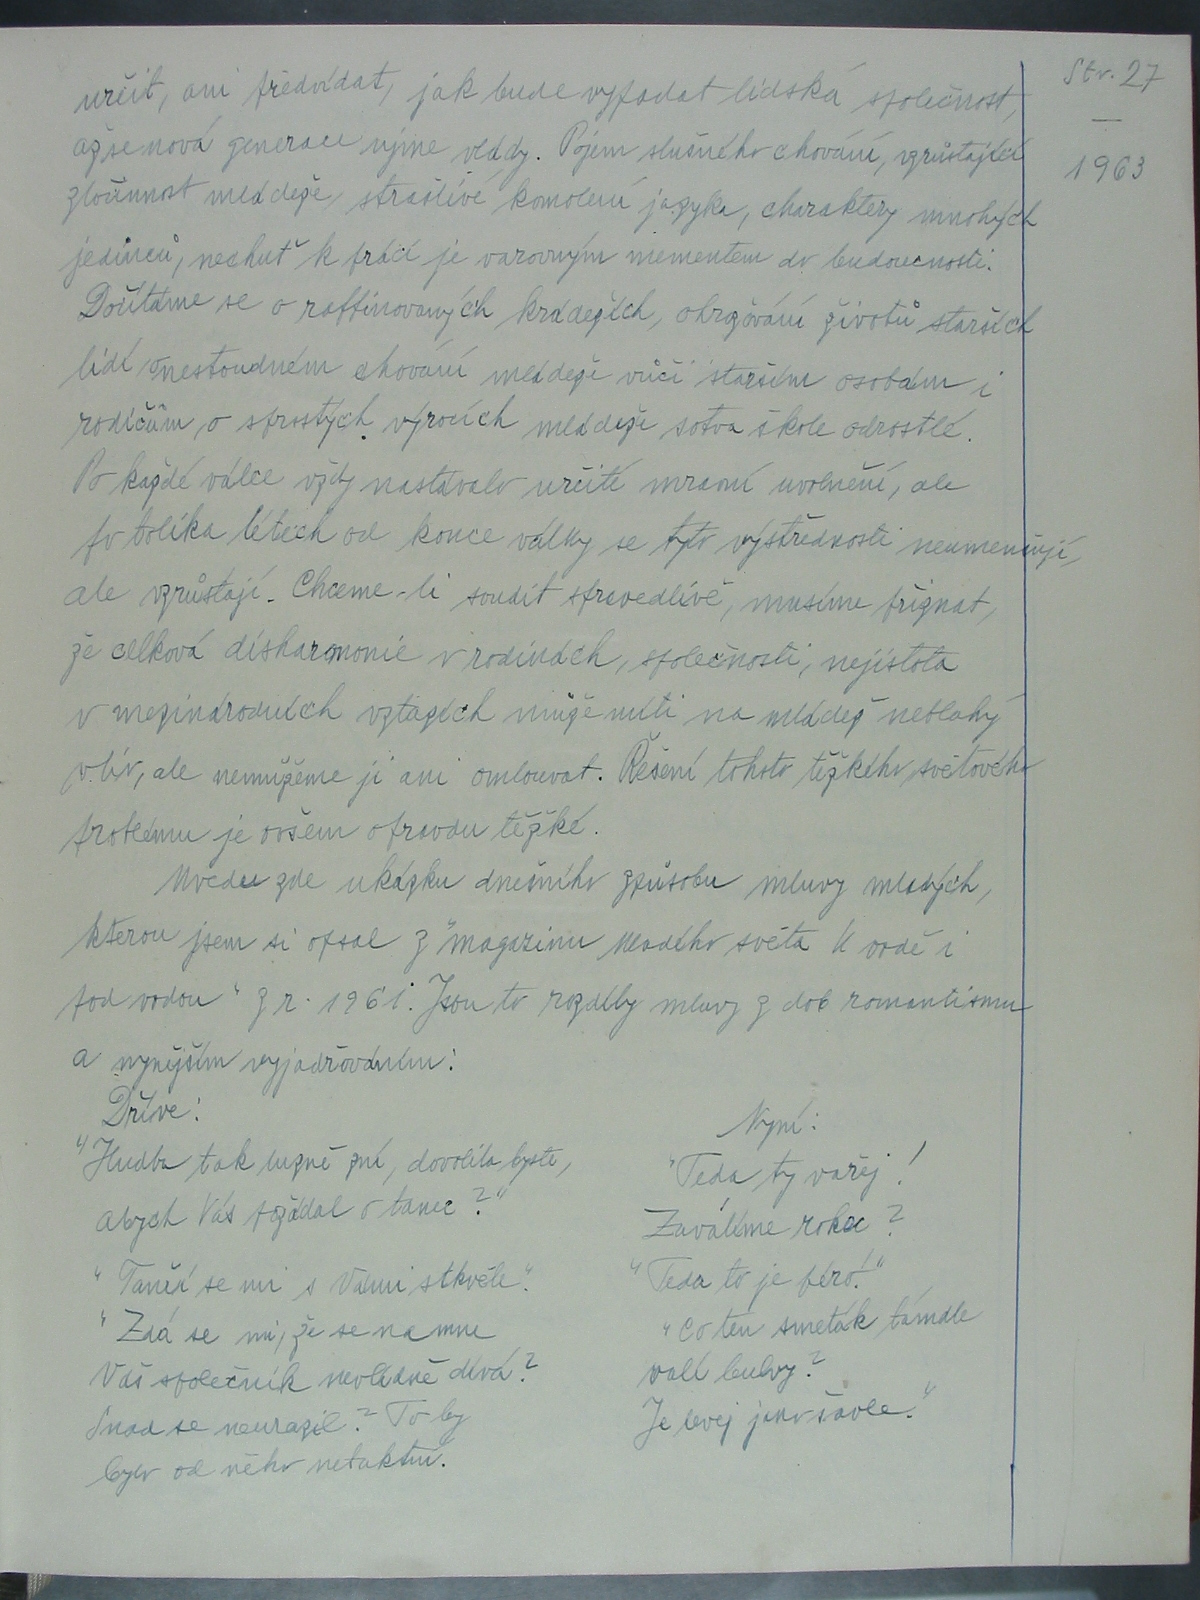 Str. 27
—
1963
určit, ani předvídat, jak bude vypadat lidská společnost,
až se nová generace ujme vlády. Pojem slušného chování, vzrůstající
zločinnost mládeže, strašlivé komolení jazyka, charaktery mnohých
jedinců, nechuť k práci je varovným mementem do budoucnosti.
Dočítáme se o raffinovaných krádežích, ohrožování životů starších
lidí, o nestoudném chování mládeže vůči starším osobám i
rodičům, o sprostých výrocích mládeže sotva škole odrostlé.
Po každé válce vždy nastávalo určité mravní uvolnění, ale
po tolika létech od konce války se tyto výstřednosti neumenšují,
ale vzrůstají. Chceme-li soudit spravedlivě, musíme přiznat,
že celková disharmonie v rodinách, společnosti, nejistota
v mezinárodních vztazích může míti na mládež neblahý
vliv, ale nemůžeme ji ani omlouvat. Řešení tohoto těžkého světového
problému je ovšem opravdu těžké.
Uvedu zde ukázku dnešního způsobu mluvy mladých,
kterou jsem si opsal z "magazinu Mladého světa U vodě i
pod vodou" z r. 1961. Jsou to rozdíly mluvy z dob romantismu
a nynějším vyjadřováním:
Dříve:
"Hudba tak luzně zní, dovolila byste,
abych Vás požádal o tanec?"
"Tančí se mi s Vámi skvěle".
"Zdá se mi, že se na mne
Váš společník nevlídně dívá?
Snad se neurazil? To by
bylo od něho netaktní.
Nyní:
"Teda ty vařej!
Zaválíme roka?
"Teda to je péró!"
"Co ten smeták támdle
valí bulvy?
Je levej jako šavle."